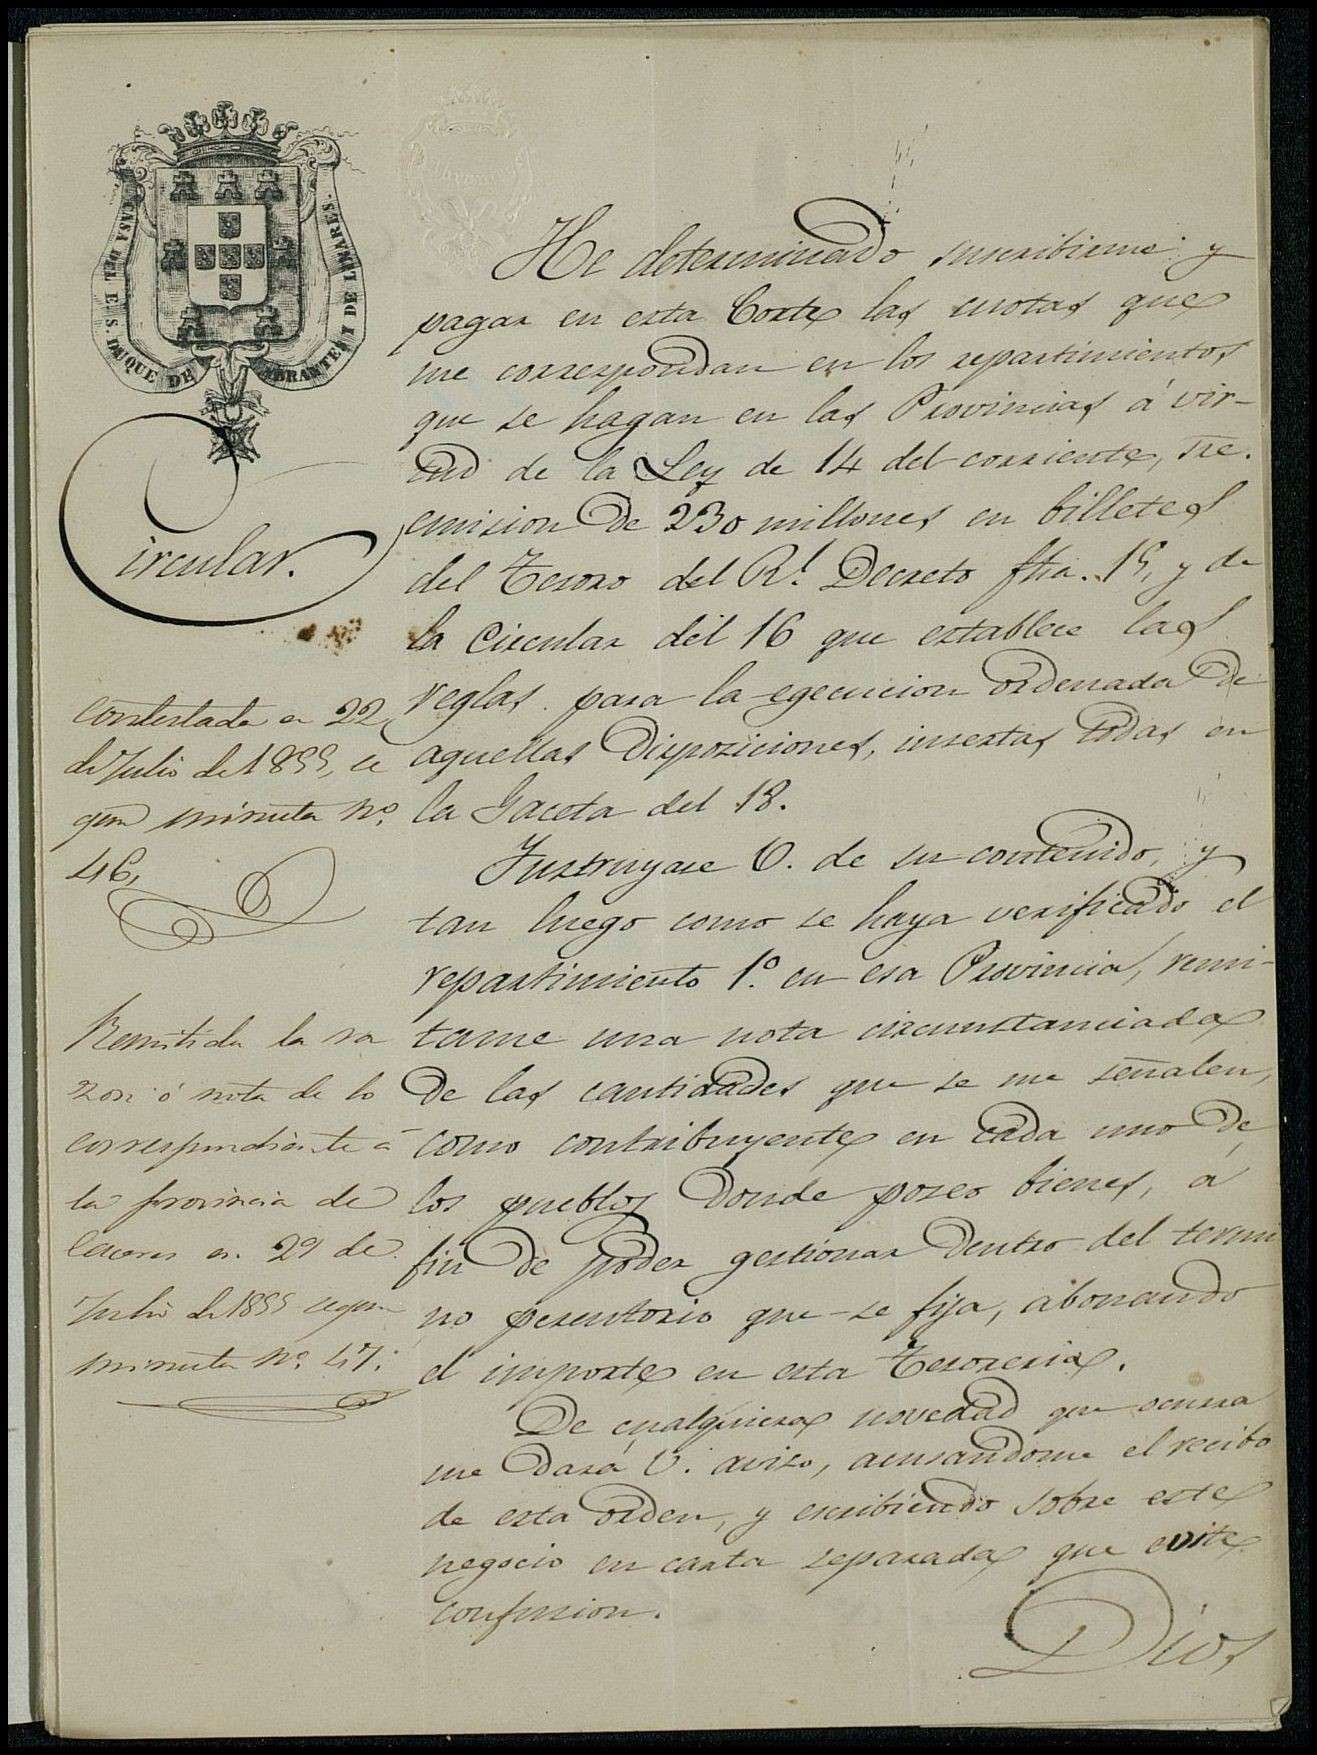 CASA DEL E. S. DUQUE DE ABRANTES Y DE LINARES.
Circular.
He determinado suscribirme y
pagar en esta Corte las cuotas que
me correspondan en los repartimientos
que se hagan en las Provincias á vir-
tud de la Ley de 14 del corriente, sre.
emision de 230 millones en billetes
del Tesoro del Rl. Decreto fha. 15, y de
la Circular del 16 que establece las
reglas para la egecucion ordenada de
aquellas disposiciones, insertas todas en
la Gaceta del 18.
Instruyase V. de su contenido, y
tan luego como se haya verificado el
repartimiento 1.º en esa Provincia, remi-
tame una nota circunstanciada
de las cantidades que se me señalen,
como contribuyente en cada uno de
los pueblos donde poseo bienes, á
fin de poder gestionar dentro del termi
no perentorio que se fija, abonando
el importe en esta Tesoreria.
De cualquiera novedad que ocurra
me dará V. aviso, acusandome el recibo
de esta orden, y escribiendo sobre este
negocio en carta separada que evite
confusion.
Dios
Contestada en 22
de Julio de 1855, se
gun minuta nº.
46,
Remitida la ra
zon ó nota de lo
correspondiente á
la provincia de
Caceres en 29 de
Julio de 1855 segun
minuta nº. 47.